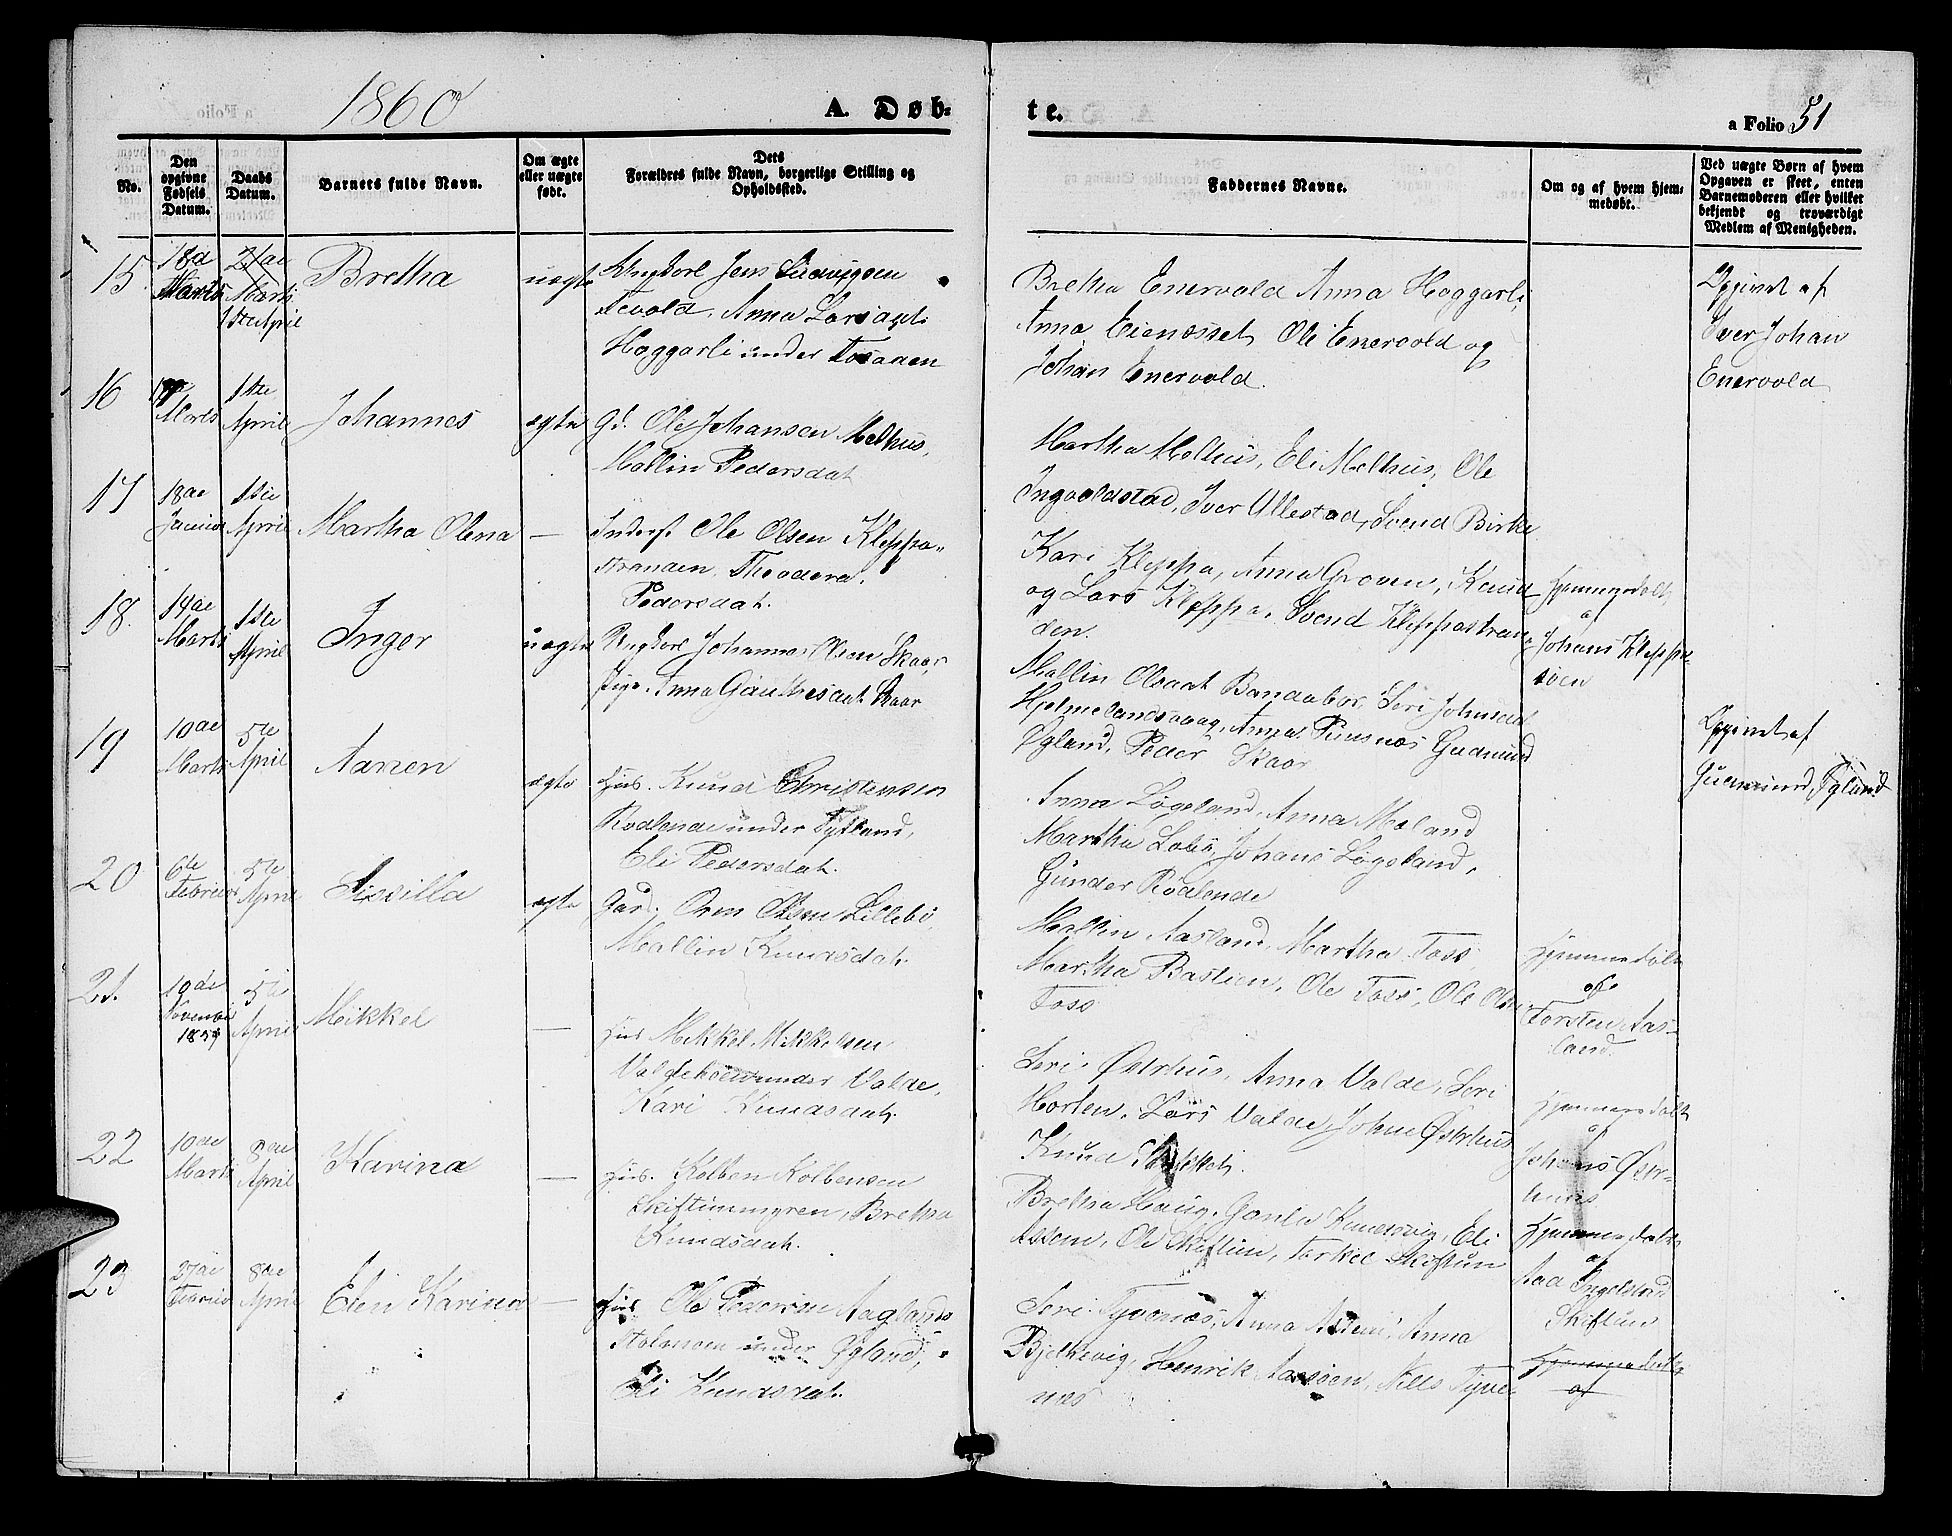 1860
A. Døb-
te.
a Folio 51
No.
Den opgivne Fødsels Datum.
Daabs Datum.
Barnets fulde Navn.
Om ægte eller uægte født.
Dets Forældres fulde Navn, borgerlige Stilling og Opholdssted.
Faddernes Navne.
Om og af hvem hjemmedøbt.
Ved uægte Børn af hvem Opgaven er skeet, enten Barnemoderen eller hvilket bekjendt og troværdigt Medlem af Menigheden.
15
18de Marts
Marts 1ste April
Bretha
uægte
Ungkarl Jens Ludvigsen
Tevold, Anna Larsdat.
Hoggarli under Tosanen
Bretha Enervold Anna Hoggarli,
Anna Eienesset, Ole Enervold og
Johan Enervold.
Opgivet af
Iver Johan
Enervold
16
Marts
1ste April
Johannes
ægte
Gd. Ole Johansen Melhus,
Mallin Pedersdat.
Martha Melhus, Eli Melhus, Ole
Ingvoldstad, Iver Ullestad, Svend Birke
17
18de Januar
1ste April
Martha Olena
—
Inderst Ole Olsen Kleppa-
stranden, Theodora
Pedersdat.
Kari Kleppa, Anna Groven, Knud
og Lars Kleppa, Svend Kleppastran-
den.
Hjemmedøbt
af
Johans Kleppe-
18.
14de Marts
1ste April
Inger
uægte
Ungkarl Johannes Olsen Skaar,
Pige Anna Gauthesdat. Skaar
Mallin Olsdat Bandabor, Seri Johnsdat
Hjelmelandsvaag, Anna Puntsnæs Gudmund
Øgland, Peder Skaar
Opgivet af
Gudmund Øgland
19
10de Marts
5te April
Aanen
ægte
Hus. Knud Christensen
Rodlende under Tytland,
Eli Pedersdat.
Anna Løgeland, Anna Mæland
Martha Johans Løgeland,
Gunder Rodlende
20
6te Februar
5te April
Sissilla
ægte
Gard. Orm Olsen Lillebø
Mallin Knudsdat.
Mallin Aasland, Martha Foss,
Martha Bastlien, Ole Foss, Ole Olsen
Foss
Hjemmedøbt
af
Torsten Aas-
land.
21.
19de November 1859
5te April
Mikkel
—
Hus Mikkel Mikkelsen
under Valde,
Kari Knudsdat.
Seri Østrhus, Anna Valde, Seri
Horten, Lars Valde, John Østrhus
Knud
Hjemmedøbt
af
Johans Østr-
huus
22
10de Marts
8de April
Karina
—
Hus. Kolben Kolbensen
Skiftunmyren, Bretha
Knudsdat.
Bretha Haug, Gonla Knudsvig, Eli
Assem, Ole Skiftun, Torkel Skiftun
Hjemmedøbt
af
Aad Ingebret
Skiftun
23
27de Februar
8de April
Elen Karina
—
Hus Ole Pedersen Aagland
under Øgland,
Eli Knudsdat.
Seri Tyvenæs, Anna Assem, Anna
Bjelkevig, Henrik Aasøen, Nills Tyve-
næs
Hjemmedøbt
af